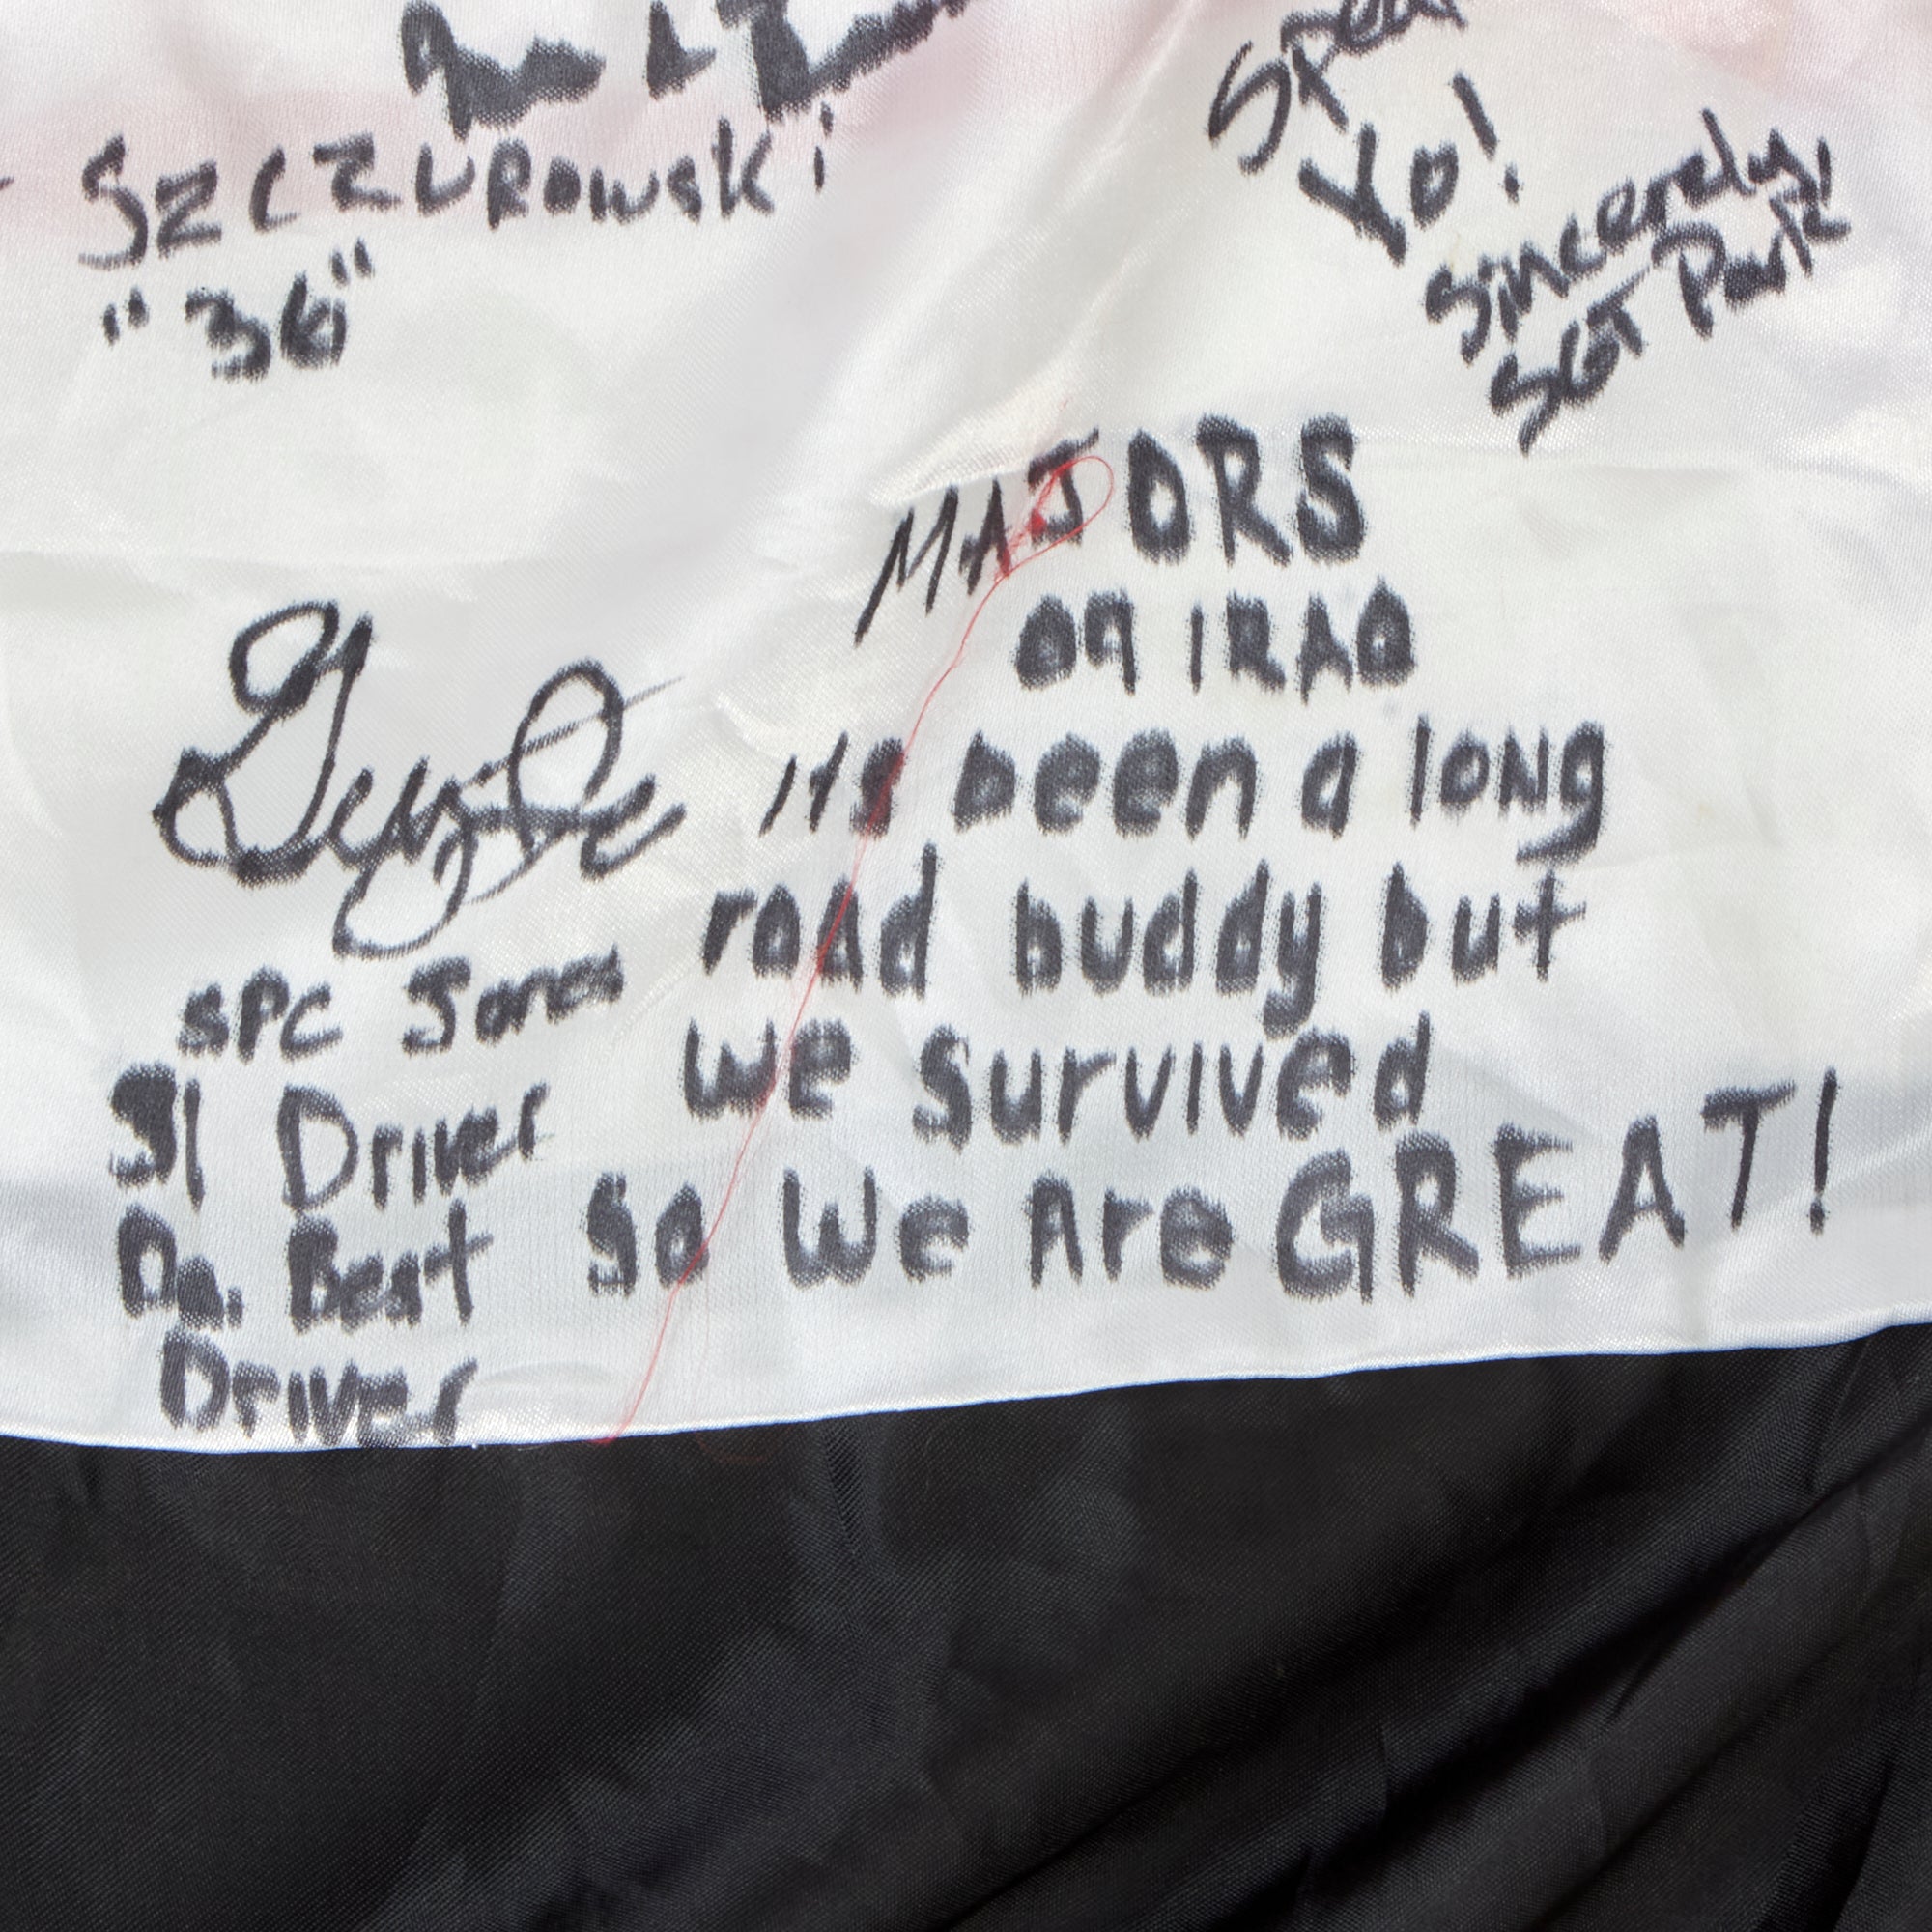 SZCZUROWSKI
"36"
Yo!
Sincerely,
SGT Park
MAJORS
09 IRAQ
Its been a long
road buddy but
we survived
So We Are GREAT!
SPC Jones
31 Driver
Da. Best
Driver